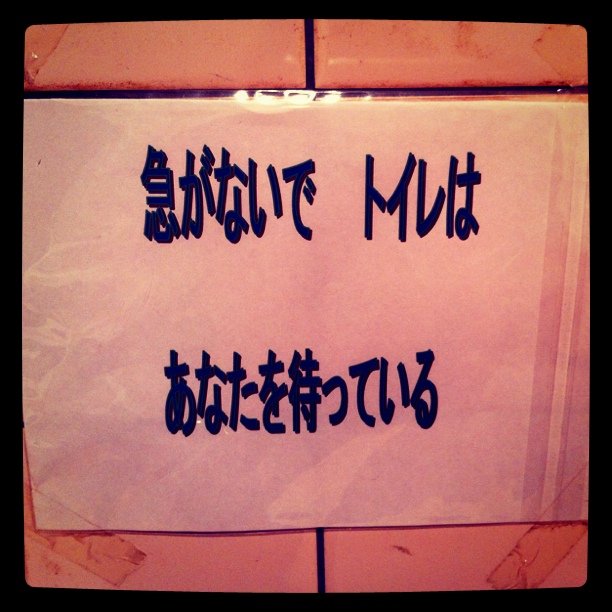 急がないで　トイレは
あなたを待っている